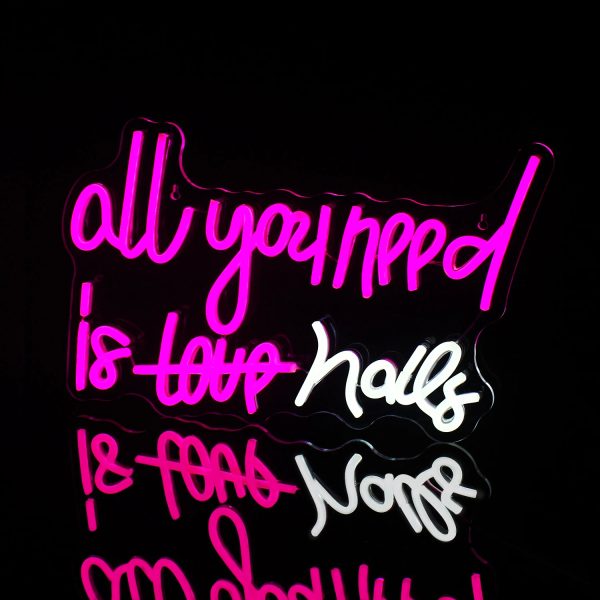 all you need
is love nails